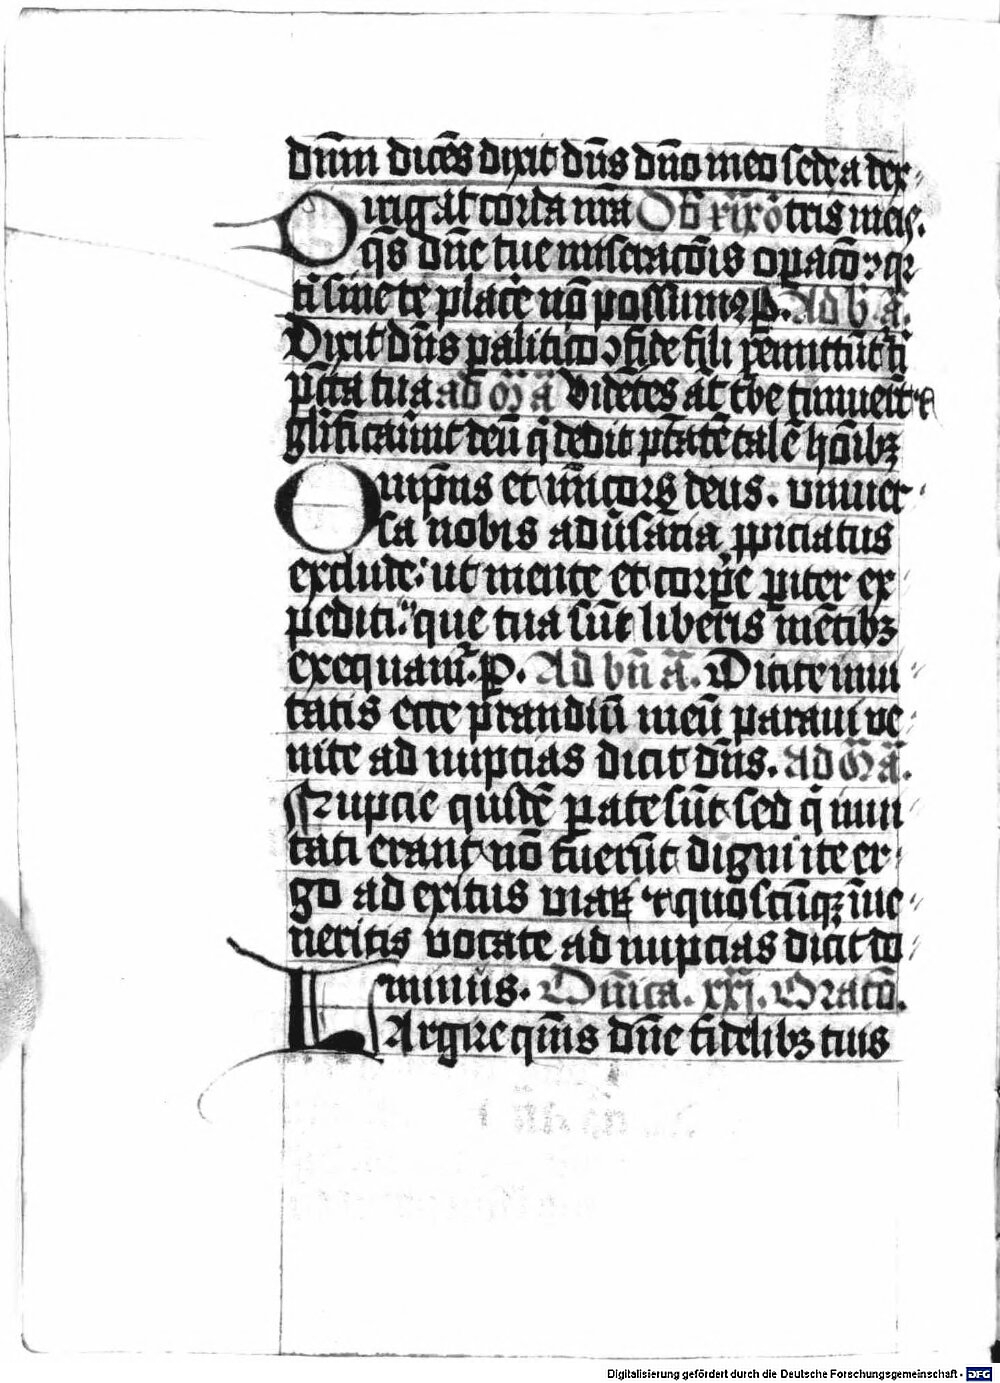 dn̄m dicēs dixit dn̄s dn̄o meo sede a dex
Dirigat corda nr̄a Dō xix ō tris meis.
qs̄ dn̄e tue miseracōis opacō ꝯ qr
ti sine te placē nō possumꝰ ꝑ. Ad b̄ ā.
Dixit dn̄s ꝑalitico ꝯfide fili ꝑemittūt ti
pctā tua ad m̄ ā Videtes at tbe timuert̄ ⁊
glīficauūnt deū q̄ dedit ptatē talē hoībꝫ
Omp̄ns et mīcors deus. vniuer
sa nobis adūsātia ꝓpiciatus
exclude: ut mente et corpe ꝑiter ex
pediti: que tua sūt liberis mētibꝫ
exequam̄. ꝑ. Ad bn̄ ā. Dicite inui
tatis ecce prandiū meū paraui ve
nite ad nupcias dicit dn̄s. Ad m̄ ā.
Nupcie quidē ꝑate sūt sed q̄ inui
tati erant nō fuerūt digni ite er
go ad exitus viaꝝ ⁊ quoscūqꝫ inue
neritis vocate ad nupcias dicit do
minus. Dn̄ica. xxj. Oracō.
Largire qm̄s dn̄e fidelibꝫ tuis
Digitalisierung gefördert durch die Deutsche Forschungsgemeinschaft - DFG